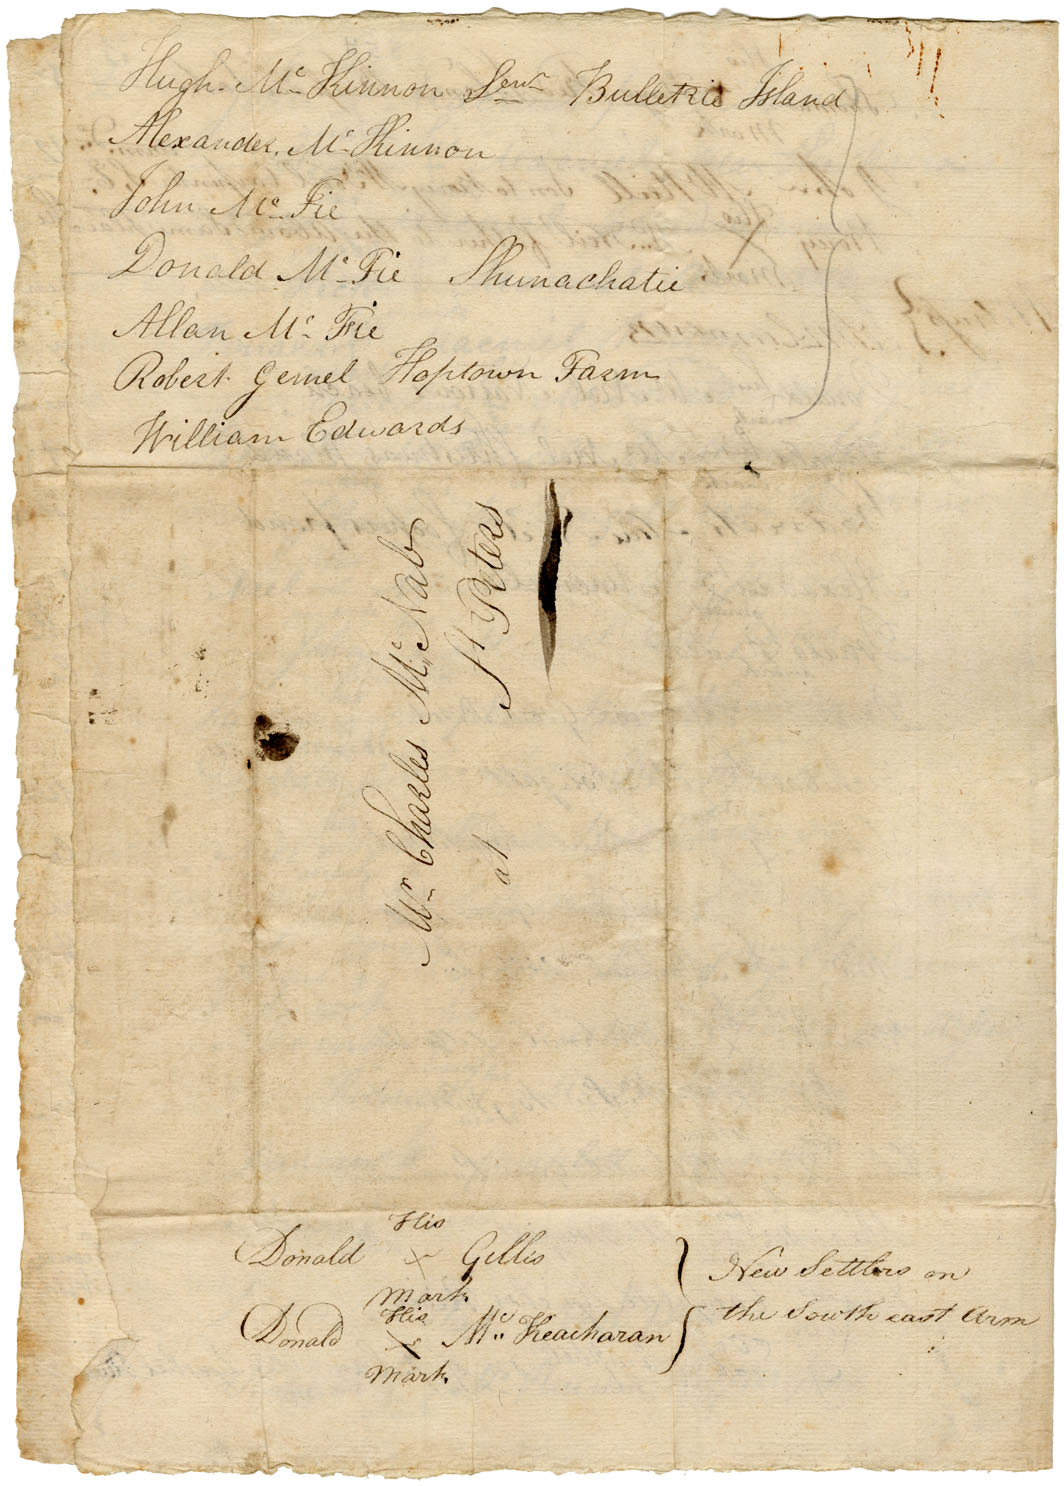 Hugh. Mc Kinnon Senr Bulletrie Island
Alexander. Mc Kinnon
John Mc Fie
Donald Mc Fie Shunachatie
Allan Mc Fie
Robert Gemel Hoptown Farm
William Edwards
Mr Charles Mc Nab
at St Peters
His
Donald x Gillis
Mark
His
Donald x Mc Keacharan
Mark
New Settlers on
the South east Arm